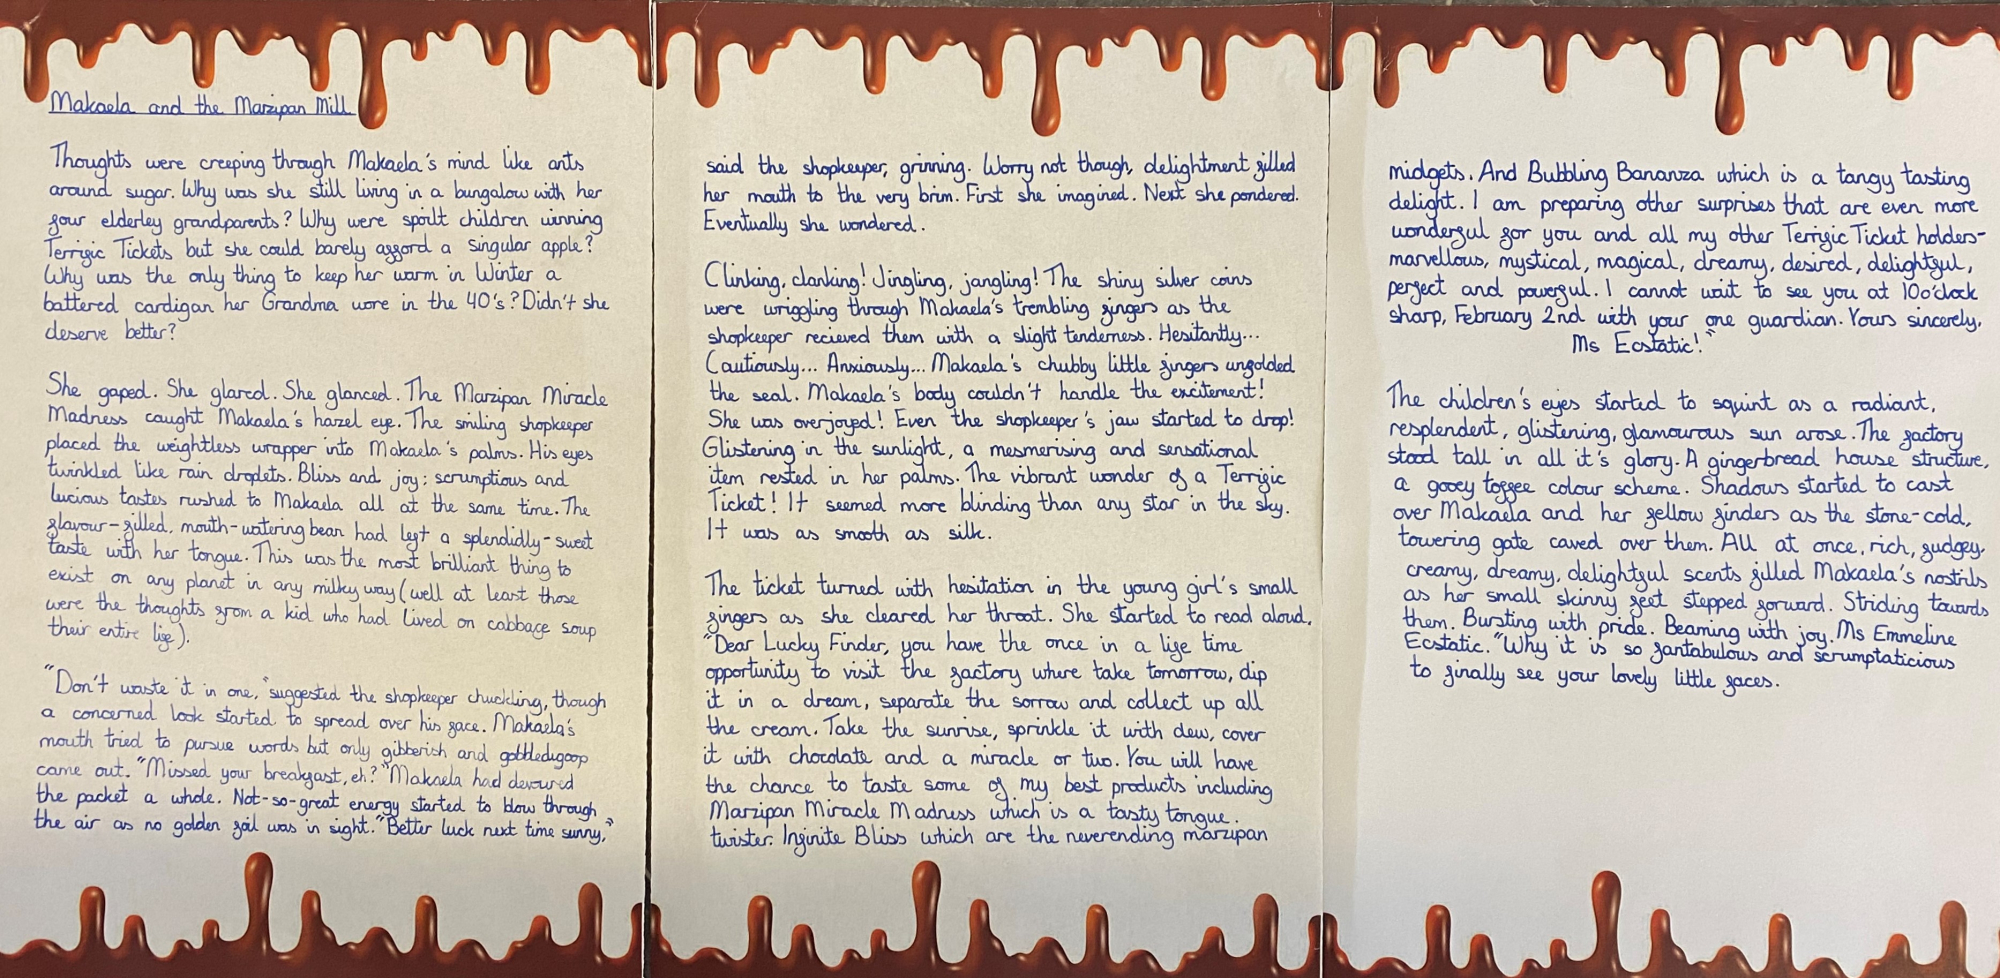 Makaela and the Marzipan Mill
Thoughts were creeping through Makaela's mind like ants
around sugar. Why was she still living in a bungalow with her
four elderley grandparents? Why were spoilt children winning
Terrific Tickets but she could barely afford a singular apple?
Why was the only thing to keep her warm in Winter a
battered cardigan her Grandma wore in the 40's? Didn't she
deserve better?
She gaped. She glared. She glanced. The Marzipan Miracle
Madness caught Makaela's hazel eye. The smiling shopkeeper
placed the weightless wrapper into Makaela's palms. His eyes
twinkled like rain droplets. Bliss and joy; scrumptious and
lucious tastes rushed to Makaela all at the same time. The
flavour-filled, mouth-watering bean had left a splendidly-sweet
taste with her tongue. This was the most brilliant thing to
exist on any planet in any milky way (well at least those
were the thoughts from a kid who had lived on cabbage soup
their entire life).
"Don't waste it in one," suggested the shopkeeper chuckling, though
a concerned look started to spread over his face. Makaela's
mouth tried to pursue words but only gibberish and gobbledigoop
came out. "Missed your breakfast, eh?" Makaela had devoured
the packet a whole. Not-so-great energy started to blow through
the air as no golden foil was in sight. "Better luck next time sunny,"
said the shopkeeper, grinning. Worry not though, delightment filled
her mouth to the very brim. First she imagined. Next she pondered.
Eventually she wondered.
Clinking, clanking! Jingling, jangling! The shiny silver coins
were wriggling through Makaela's trembling fingers as the
shopkeeper recieved them with a slight tenderness. Hesitantly...
Cautiously... Anxiously... Makaela's chubby little fingers unfolded
the seal. Makaela's body couldn't handle the excitement!
She was overjoyed! Even the shopkeeper's jaw started to drop!
Glistening in the sunlight, a mesmerising and sensational
item rested in her palms. The vibrant wonder of a Terrific
Ticket! It seemed more blinding than any star in the sky.
It was as smooth as silk.
The ticket turned with hesitation in the young girl's small
fingers as she cleared her throat. She started to read aloud.
"Dear Lucky Finder, you have the once in a life time
opportunity to visit the factory where take tomorrow, dip
it in a dream, separate the sorrow and collect up all
the cream. Take the sunrise, sprinkle it with dew, cover
it with chocolate and a miracle or two. You will have
the chance to taste some of my best products including
Marzipan Miracle Madness which is a tasty tongue.
twister. Infinite Bliss which are the neverending marzipan
midgets. And Bubbling Bananza which is a tangy tasting
delight. I am preparing other surprises that are even more
wonderful for you and all my other Terrific Ticket holders-
marvellous, mystical, magical, dreamy, desired, delightful,
perfect and powerful. I cannot wait to see you at 10o'clock
sharp, February 2nd with your one guardian. Yours sincerely,
Ms Ecstatic!"
The children's eyes started to squint as a radiant,
resplendent, glistening, glamourous sun arose. The factory
stood tall in all it's glory. A gingerbread house structure,
a gooey toffee colour scheme. Shadows started to cast
over Makaela and her fellow finders as the stone-cold,
towering gate caved over them. All at once, rich, fudgey,
creamy, dreamy, delightful scents filled Makaela's nostrils
as her small skinny feet stepped forward. Striding towards
them. Bursting with pride. Beaming with joy. Ms Emmeline
Ecstatic. "Why it is so fantabulous and scrumptaticious
to finally see your lovely little faces.